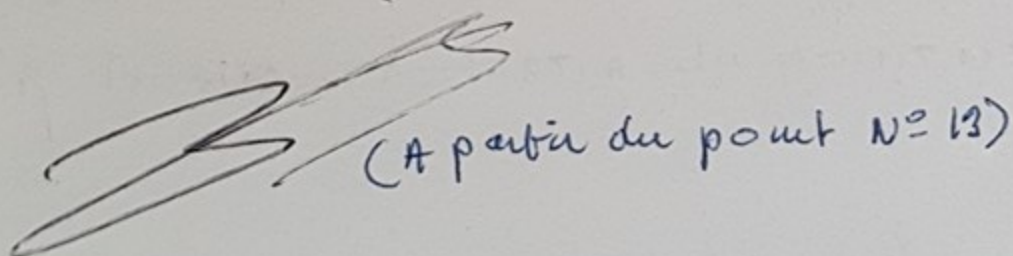 (A partir du point N° 13)